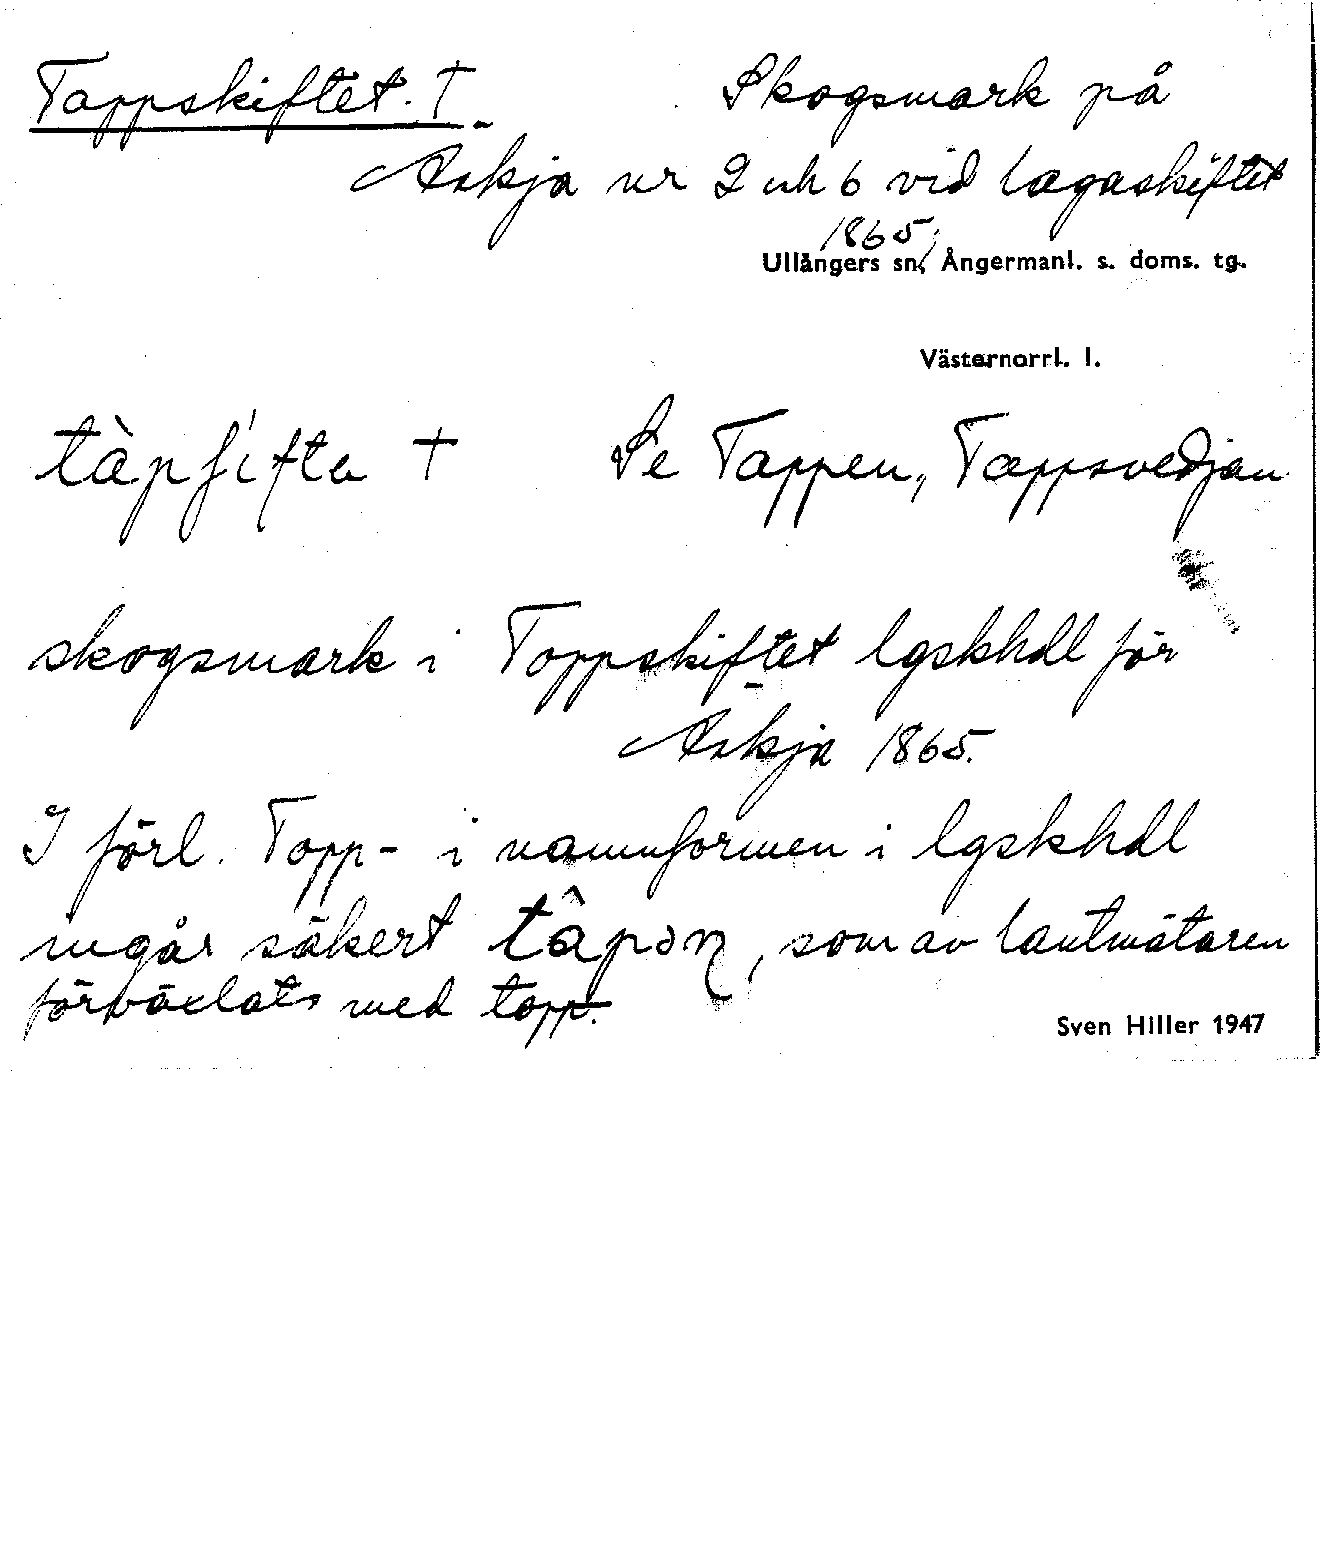 Tappskiftet. †
Skogsmark på
Askja nr 2 och 6 vid lagaskiftet
1865.
Ullångers sn, Ångermanl. s. doms. tg.
Västernorrl. l.
tàpʃifta † Se Tappen, Tappsvedjan
skogsmark i Toppskiftet lgskhdl för
Askja 1865.
I förl. Topp- i namnformen i lgskhdl
ingår säkert , som av lantmätaren
förväxlats med topp.
Sven Hiller 1947